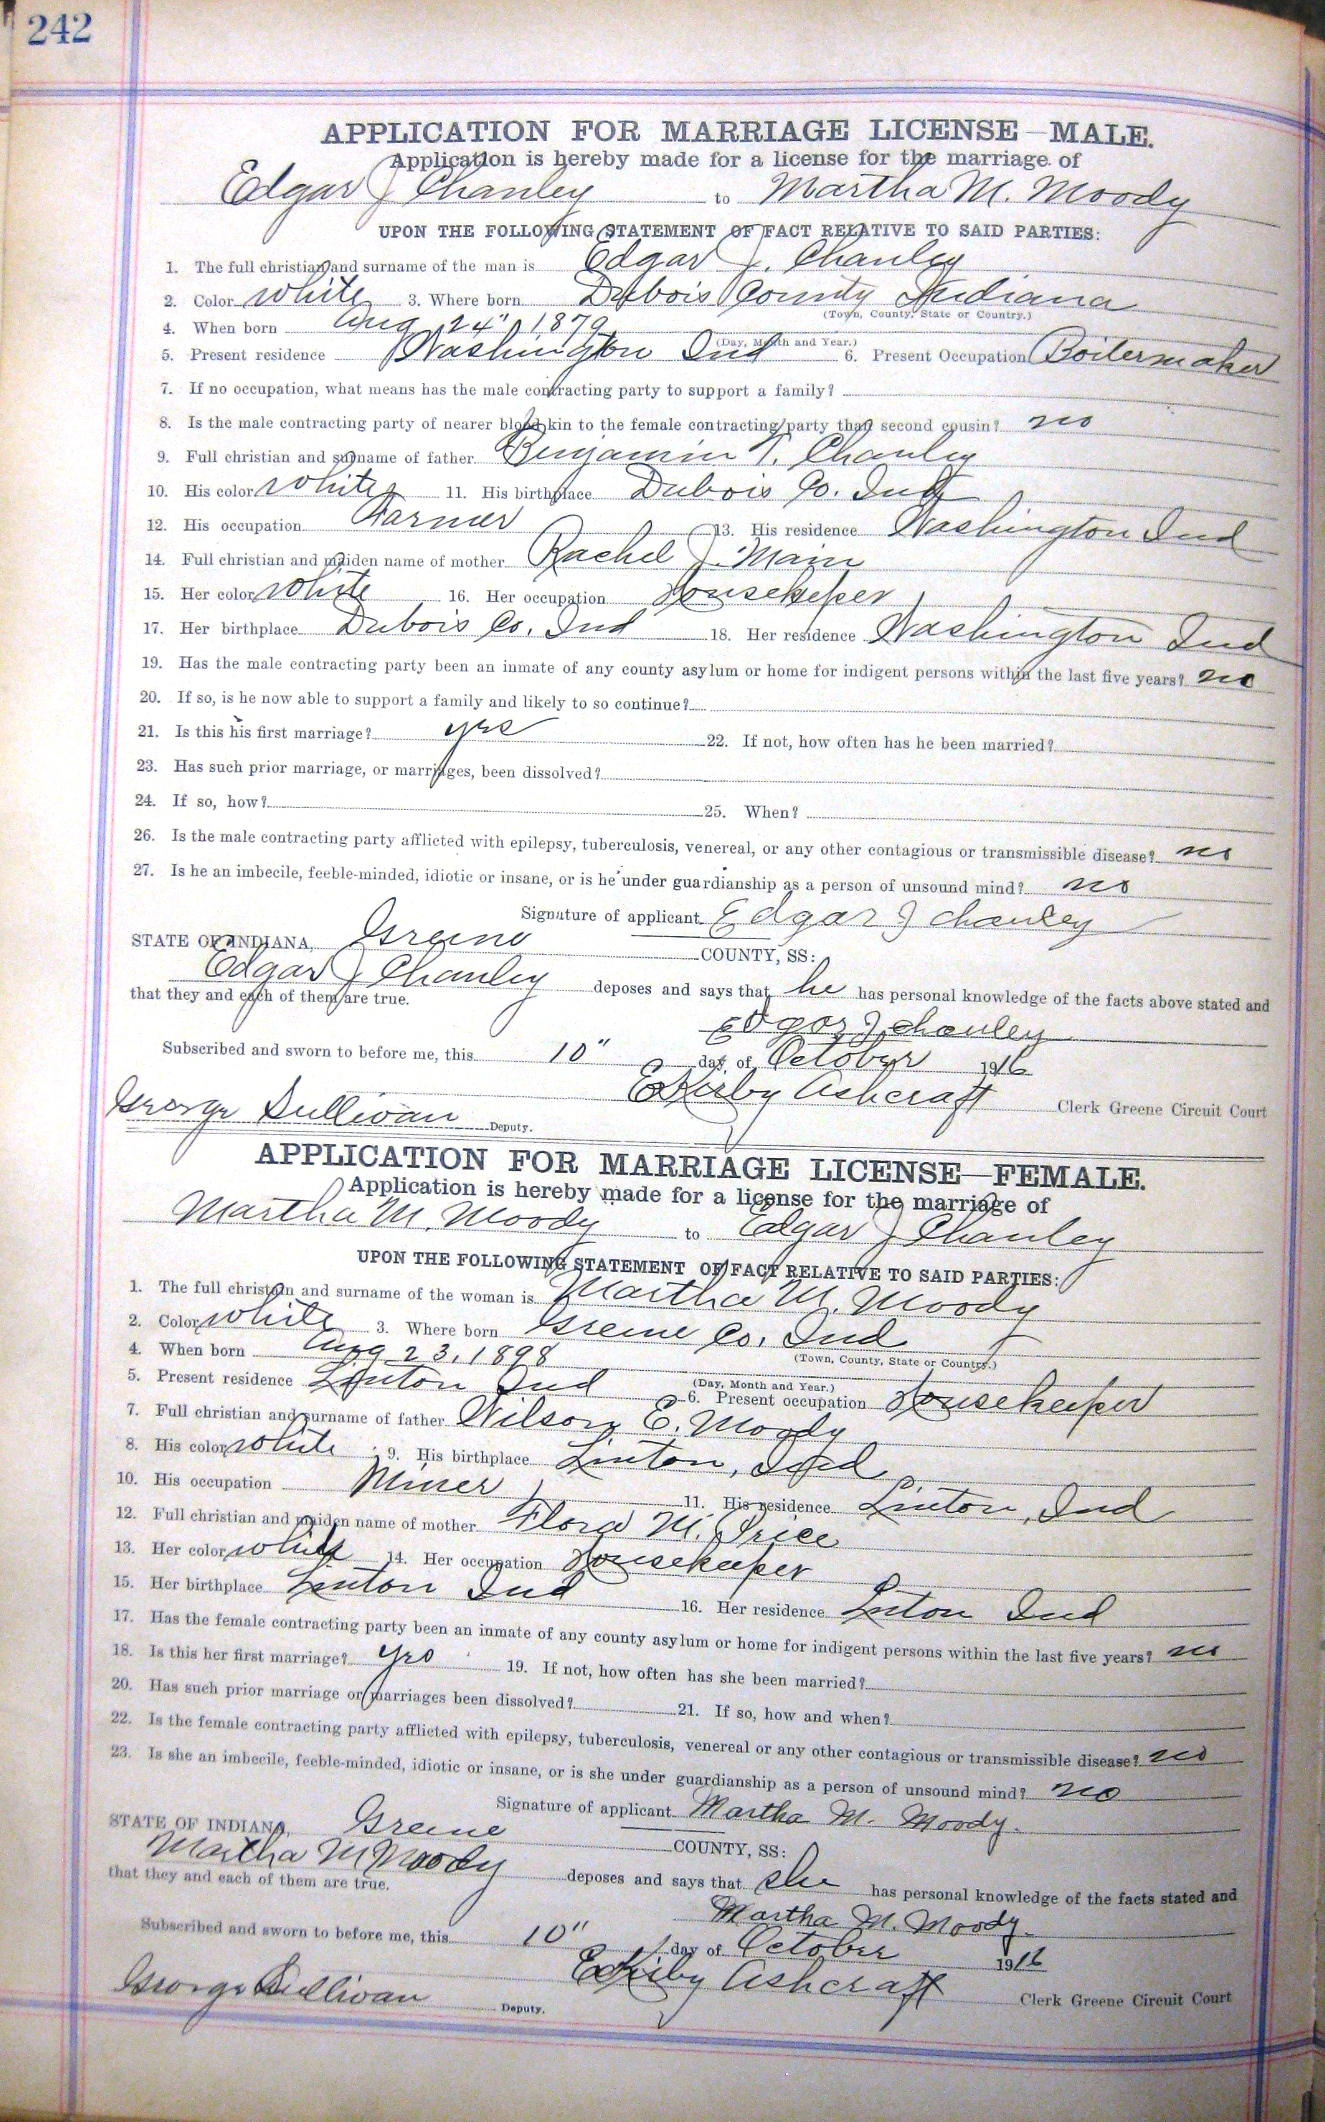 242
APPLICATION FOR MARRIAGE LICENSE—MALE.
Application is hereby made for a license for the marriage of
Edgar J Chanley to Martha M. Moody
UPON THE FOLLOWING STATEMENT OF FACT RELATIVE TO SAID PARTIES:
1. The full christian and surname of the man is Edgar J. Chanley
2. Color white 3. Where born Dubois County Indiana
(Town, County, State or Country.)
4. When born Aug 24" 1879
(Day, Month and Year.)
5. Present residence Washington Ind 6. Present Occupation Boilermaker
7. If no occupation, what means has the male contracting party to support a family?
8. Is the male contracting party of nearer blood kin to the female contracting party than second cousin? no
9. Full christian and surname of father Benjamin T. Chanley
10. His color white 11. His birthplace Dubois Co. Ind
12. His occupation Farmer 13. His residence Washington Ind
14. Full christian and maiden name of mother Rachel J. Main
15. Her color white 16. Her occupation Housekeeper
17. Her birthplace Dubois Co. Ind 18. Her residence Washington Ind
19. Has the male contracting party been an inmate of any county asylum or home for indigent persons within the last five years? no
20. If so, is he now able to support a family and likely to so continue?
21. Is this his first marriage? yes 22. If not, how often has he been married?
23. Has such prior marriage, or marriages, been dissolved?
24. If so, how? 25. When?
26. Is the male contracting party afflicted with epilepsy, tuberculosis, venereal, or any other contagious or transmissible disease? no
27. Is he an imbecile, feeble-minded, idiotic or insane, or is he under guardianship as a person of unsound mind? no
Signature of applicant Edgar J Chanley
STATE OF INDIANA, Greene COUNTY, SS:
Edgar J Chanley deposes and says that he has personal knowledge of the facts above stated and
that they and each of them are true.
Edgar J Chanley
Subscribed and sworn to before me, this 10" day of October 1916
E Kirby Ashcraft Clerk Greene Circuit Court
George Sullivan Deputy.
APPLICATION FOR MARRIAGE LICENSE—FEMALE.
Application is hereby made for a license for the marriage of
Martha M. Moody to Edgar J Chanley
UPON THE FOLLOWING STATEMENT OF FACT RELATIVE TO SAID PARTIES:
1. The full christian and surname of the woman is Martha M. Moody
2. Color white 3. Where born Greene Co. Ind
(Town, County, State or Country.)
4. When born Aug 23, 1898
(Day, Month and Year.)
5. Present residence Linton Ind 6. Present occupation Housekeeper
7. Full christian and surname of father Wilson E. Moody
8. His color white 9. His birthplace Linton, Ind
10. His occupation Miner 11. His residence Linton, Ind
12. Full christian and maiden name of mother Flora M. Price
13. Her color white 14. Her occupation Housekeeper
15. Her birthplace Linton Ind 16. Her residence Linton Ind
17. Has the female contracting party been an inmate of any county asylum or home for indigent persons within the last five years? no
18. Is this her first marriage? yes 19. If not, how often has she been married?
20. Has such prior marriage or marriages been dissolved? 21. If so, how and when?
22. Is the female contracting party afflicted with epilepsy, tuberculosis, venereal or any other contagious or transmissible disease? no
23. Is she an imbecile, feeble-minded, idiotic or insane, or is she under guardianship as a person of unsound mind? no
Signature of applicant Martha M. Moody.
STATE OF INDIANA, Greene COUNTY, SS:
Martha M Moody deposes and says that she has personal knowledge of the facts stated and
that they and each of them are true.
Martha M. Moody.
Subscribed and sworn to before me, this 10" day of October 1916
E Kirby Ashcraft Clerk Greene Circuit Court
George Sullivan Deputy.